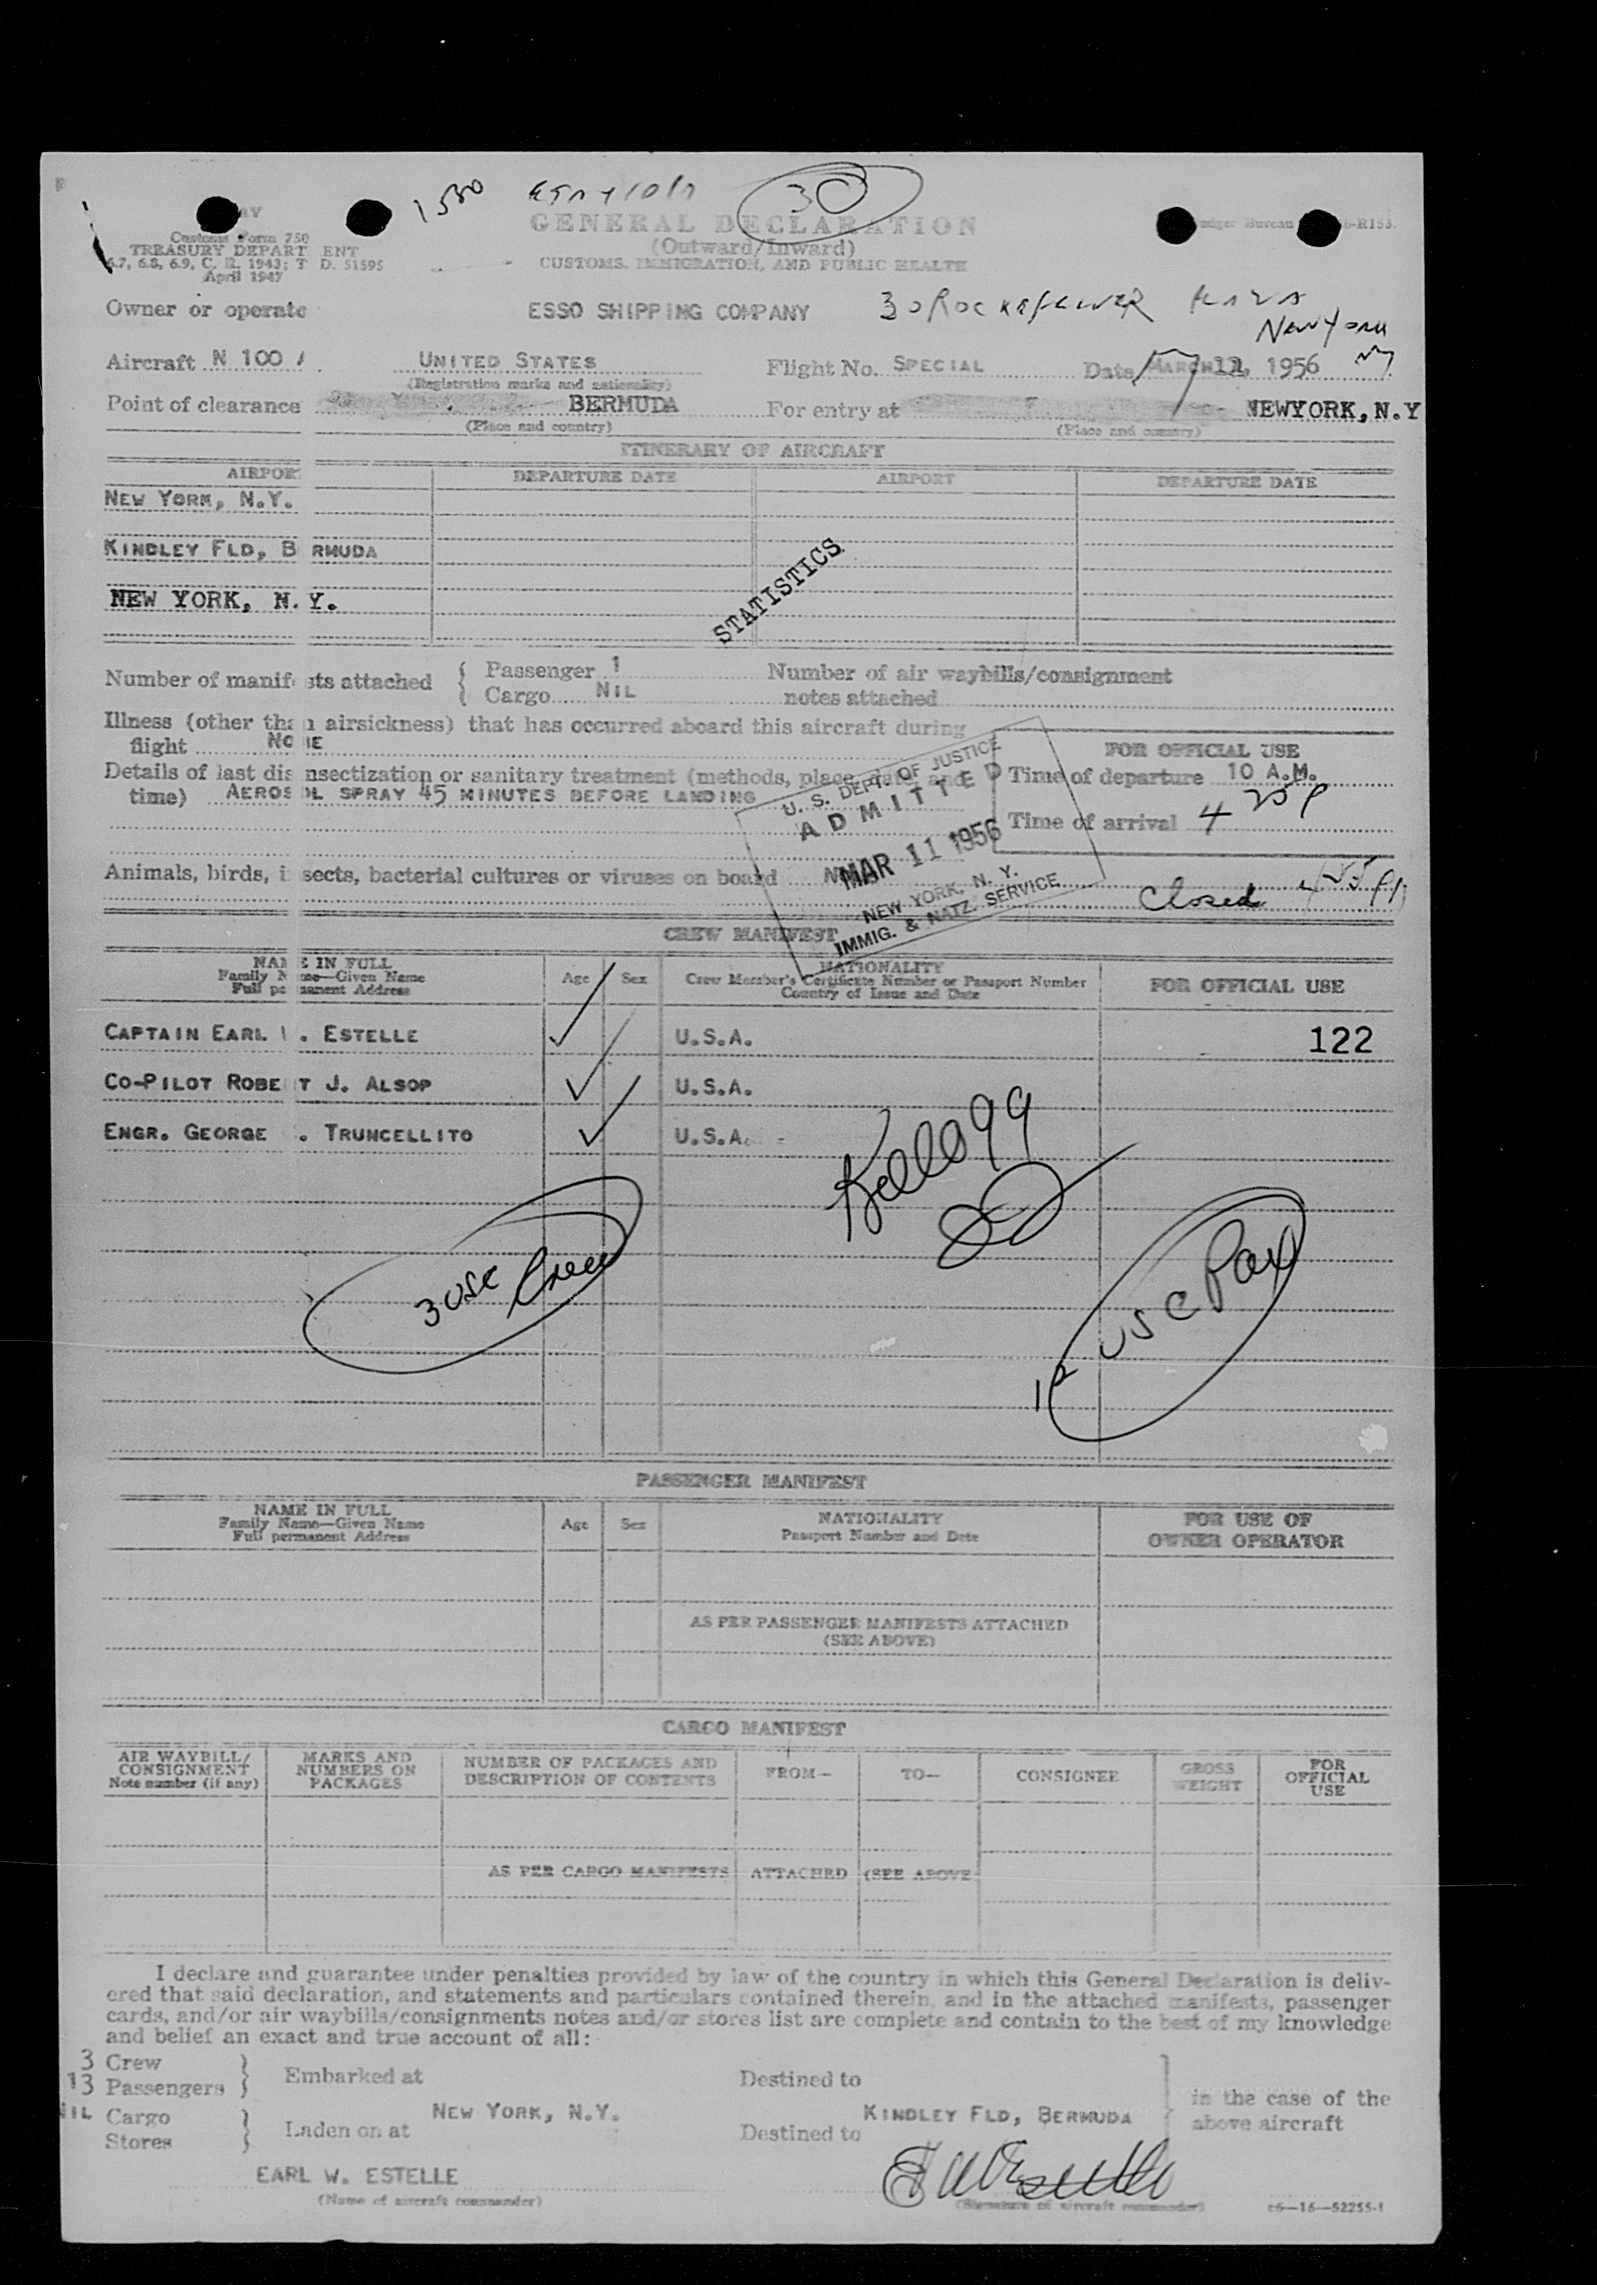 1530
30
GENERAL DECLARATION
(Outward/Inward)
CUSTOMS, IMMIGRATION, AND PUBLIC HEALTH
Customs Form 750
TREASURY DEPART ENT
6.7, 6.8, 6.9, C. R. 1943; T D. 51595
April 1947
Owner or operato ESSO SHIPPING COMPANY 30 Rockefeller Plaza
New York
NY
Aircraft N 100 UNITED STATES Flight No. SPECIAL Date MARCH 11, 1956
(Registration marks and nationality)
Point of clearance BERMUDA For entry at NEWYORK, N.Y
(Place and country) (Place and country)
ITINERARY OF AIRCRAFT
AIRPORT DEPARTURE DATE AIRPORT DEPARTURE DATE
NEW YORK, N.Y.
KINDLEY FLD, B RMUDA
NEW YORK, N.Y.
STATISTICS
Number of manifests attached { Passenger 1 Number of air waybills/consignment
{ Cargo NIL notes attached
Illness (other than airsickness) that has occurred aboard this aircraft during
flight NONE
FOR OFFICIAL USE
Details of last disinsectization or sanitary treatment (methods, place, date and
time) AEROSOL SPRAY 45 MINUTES BEFORE LANDING
Time of departure 10 A.M.
Time of arrival 4 25 P
U. S. DEPT. OF JUSTICE
ADMITTED
MAR 11 1956
NEW YORK, N. Y.
IMMIG. & NATZ. SERVICE
Animals, birds, insects, bacterial cultures or viruses on board
Closed 4 55 PM
CREW MANIFEST
NAME IN FULL
Family Name—Given Name
Full permanent Address
Age Sex
NATIONALITY
Crew Member's Certificate Number or Passport Number
Country of Issue and Date
FOR OFFICIAL USE
CAPTAIN EARL . ESTELLE U.S.A. 122
CO-PILOT ROBERT J. ALSOP U.S.A.
ENGR. GEORGE . TRUNCELLITO U.S.A.
Kellogg
3 USC Crew
1 USC Pax
PASSENGER MANIFEST
NAME IN FULL
Family Name—Given Name
Full permanent Address
Age Sex
NATIONALITY
Passport Number and Date
FOR USE OF
OWNER OPERATOR
AS PER PASSENGER MANIFESTS ATTACHED
(SEE ABOVE)
CARGO MANIFEST
AIR WAYBILL/
CONSIGNMENT
Note number (if any)
MARKS AND
NUMBERS ON
PACKAGES
NUMBER OF PACKAGES AND
DESCRIPTION OF CONTENTS
FROM—
TO—
CONSIGNEE
GROSS
WEIGHT
FOR
OFFICIAL
USE
AS PER CARGO MANIFESTS ATTACHED (SEE ABOVE
I declare and guarantee under penalties provided by law of the country in which this General Declaration is deliv-
ered that said declaration, and statements and particulars contained therein, and in the attached manifests, passenger
cards, and/or air waybills/consignments notes and/or stores list are complete and contain to the best of my knowledge
and belief an exact and true account of all:
3 Crew
13 Passengers
Embarked at Destined to
NIL Cargo
Stores
NEW YORK, N.Y. KINDLEY FLD, BERMUDA
Laden on at Destined to
in the case of the
above aircraft
EARL W. ESTELLE
(Name of aircraft commander)
EW Estelle
(Signature of aircraft commander)
c6—16—52255-1